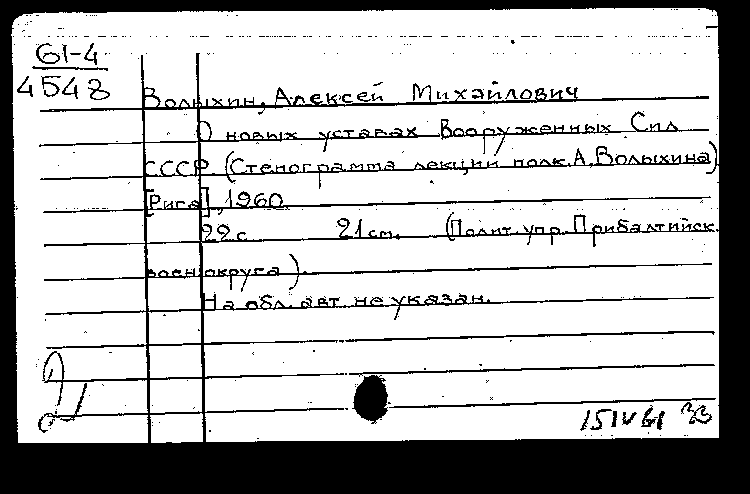 61-4
4548
Волыхин, Алексей Михайлович
О новых уставах Вооруженных Сил
СССР. (Стенограмма лекции полк. А. Волыхина)
[Рига], 1960.
22 с. 21 см. (Полит. упр. Прибалтийск.
воен. округа).
На обл. авт. не указан.